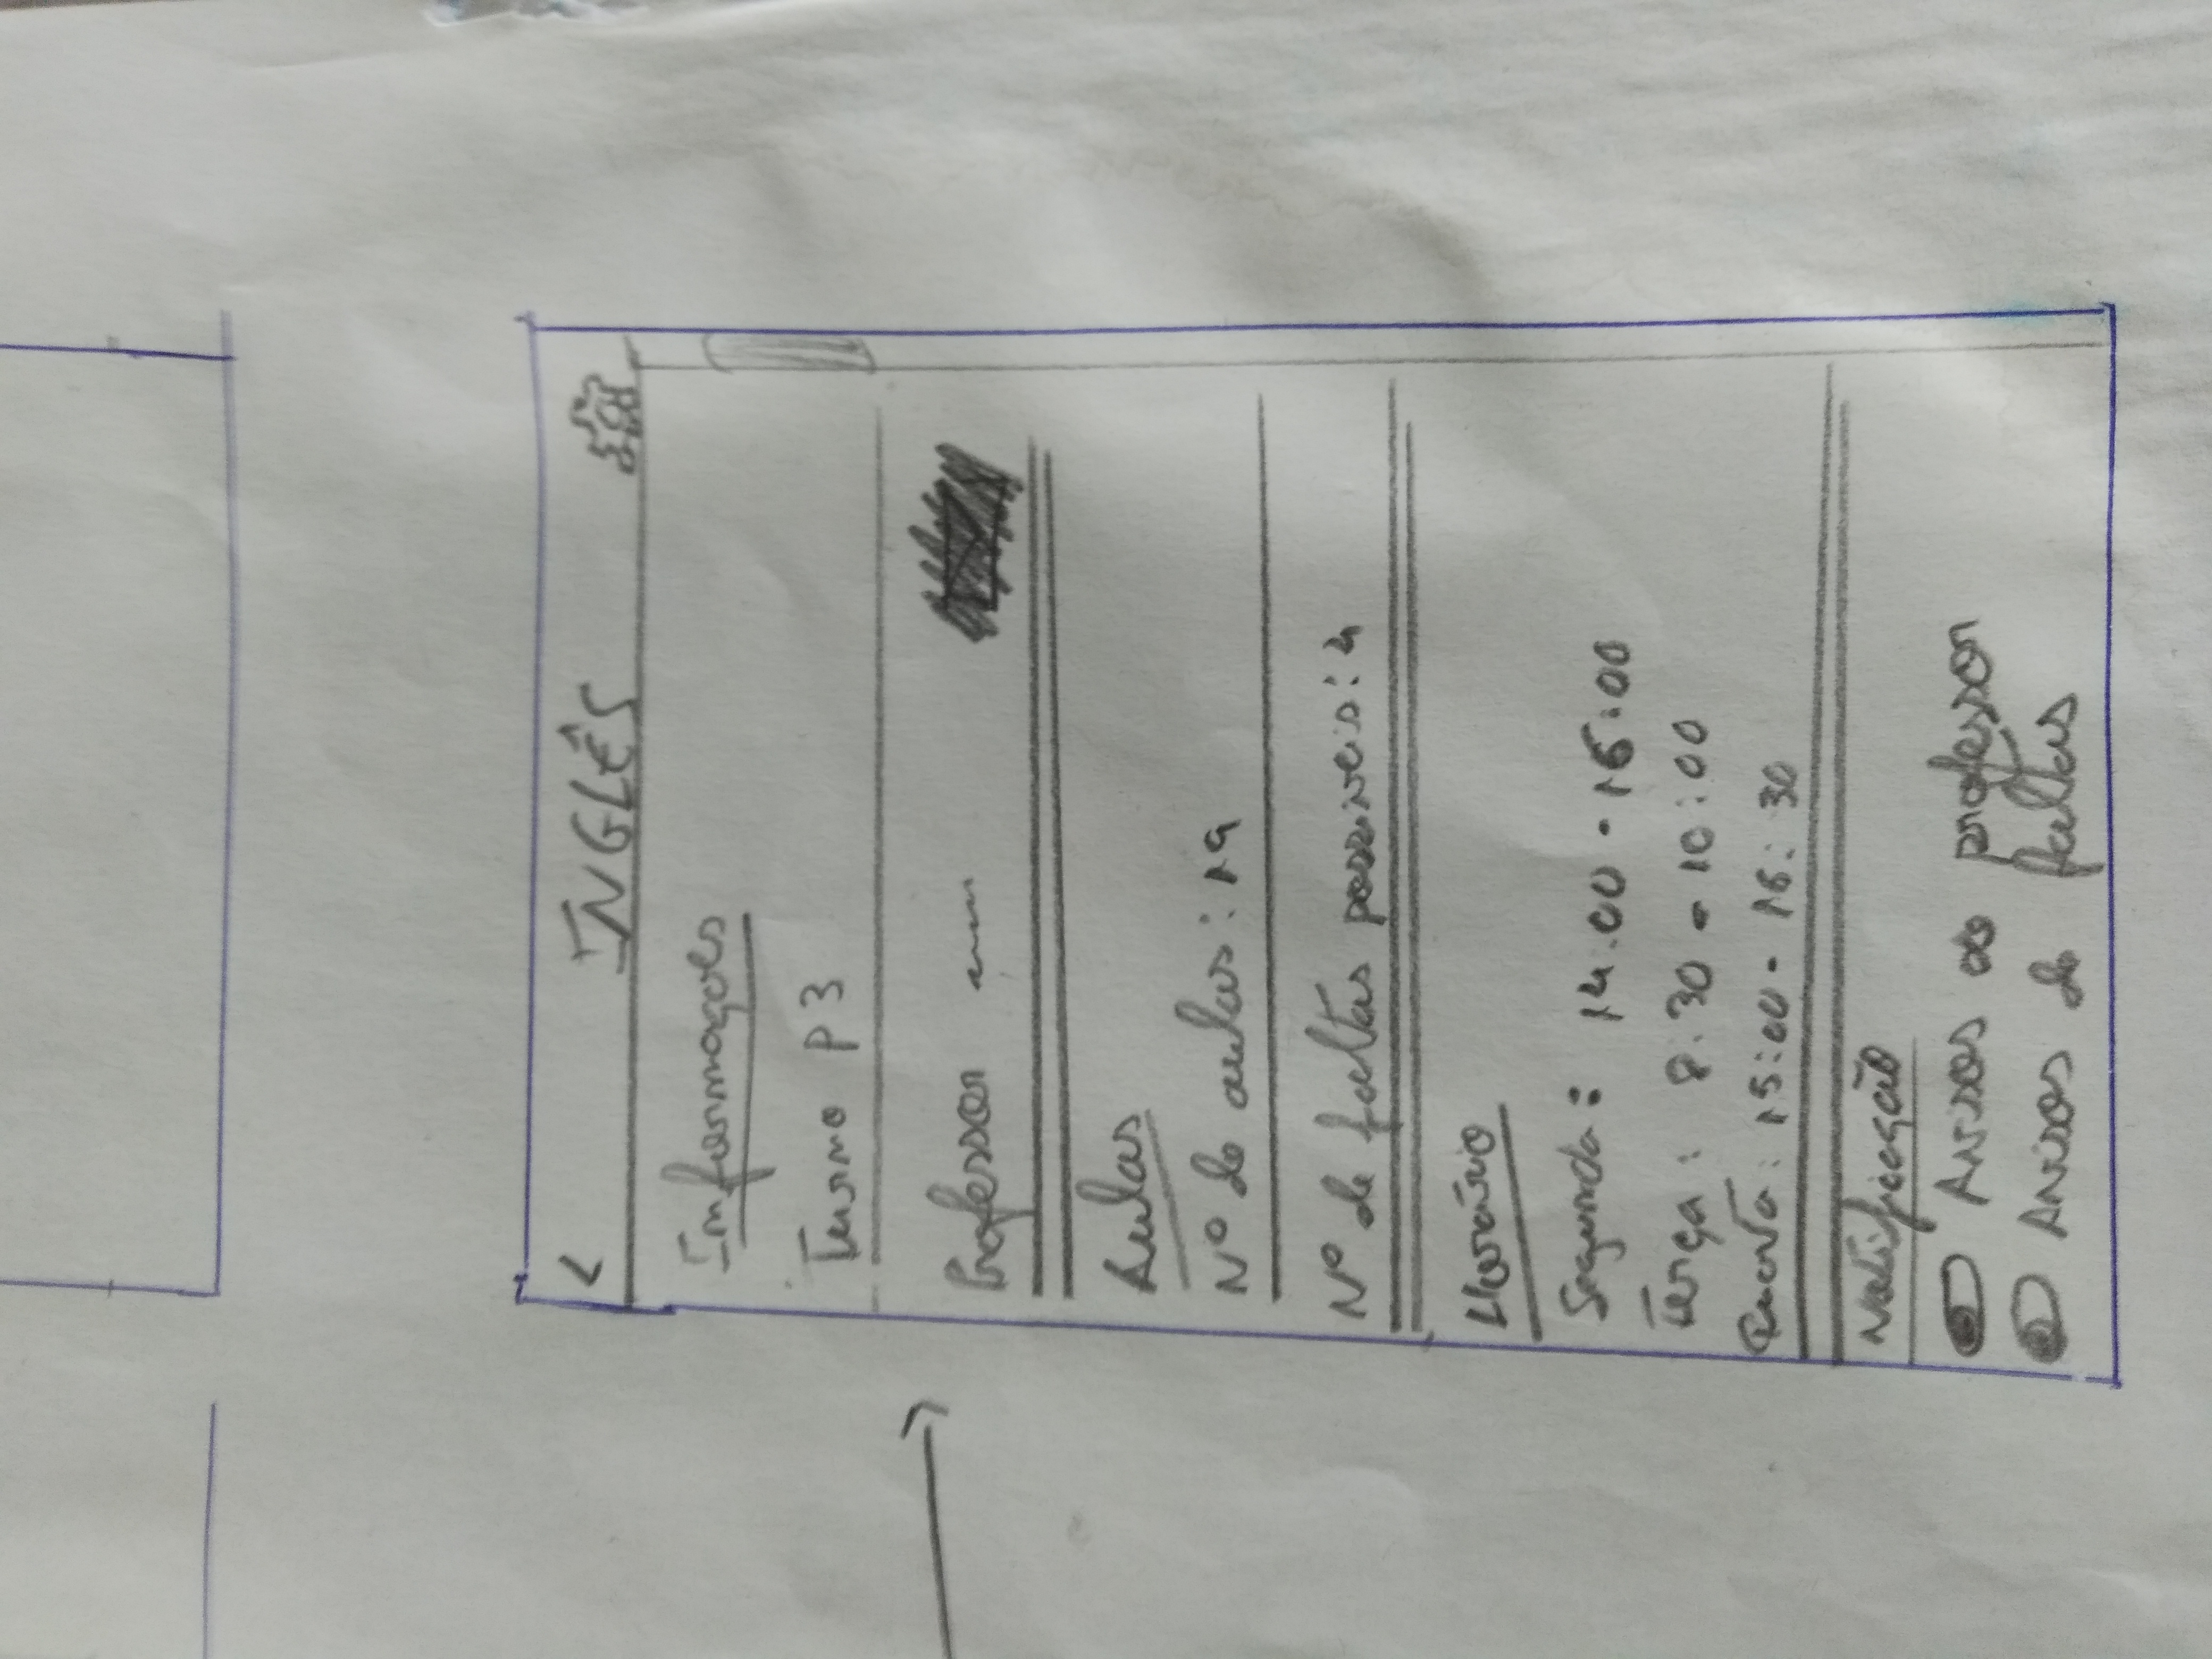 < INGLÊS
Informações
Turno P3
Professor
Aulas
Nº de aulas: 19
Nº de faltas possíveis: 4
Horário
Segunda: 14:00 - 16:00
Terça: 8:30 - 10:00
Quarta: 15:00 - 16:30
Notificação
Avisos do professor
Avisos de faltas